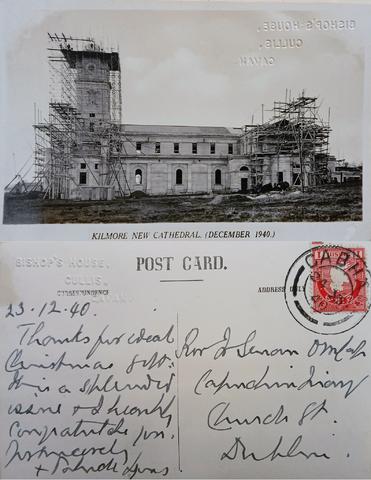 BISHOP'S HOUSE,
CULLIS,
CAVAN.
KILMORE NEW CATHEDRAL. (DECEMBER 1940.)
BISHOP'S HOUSE,
CULLIS,
CAVAN.
POST CARD.
CORRESPONDENCE
ADDRESS ONLY
23.12.40.
Thanks for ideal
Christmas gift.
It is a splendid
issue & I heartily
congratulate you.
Yrs sincerely
+ Patrick Lyons
Rev. Fr Senan OM Cap
Capuchin Friary
Church St.
Dublin.